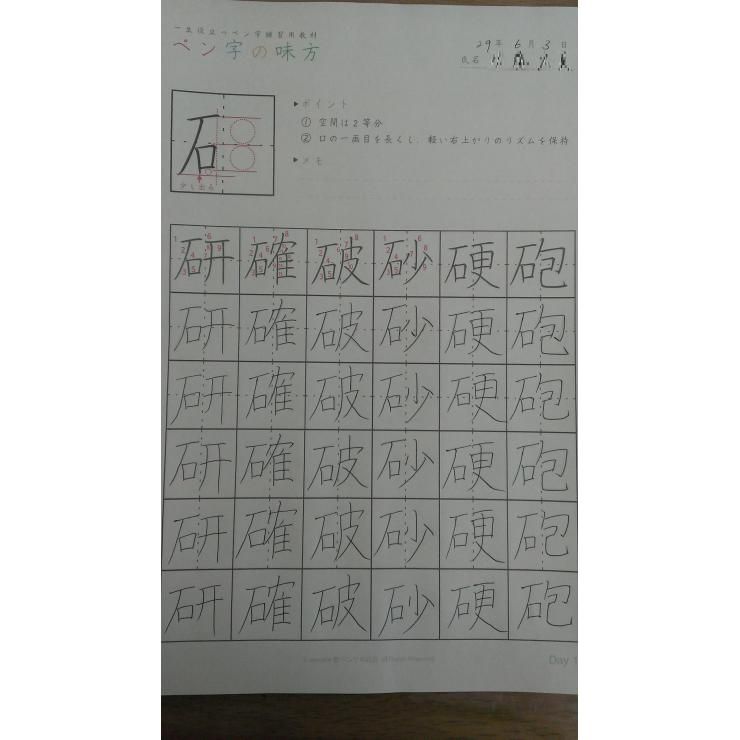 一生役立つペン字練習用教材
ペン字の味方
29年 6月 3日
氏名
▶ポイント
① 空間は2等分
② 口の一画目を長くし、軽い右上がりのリズムを保持
▶メモ
石
少し出る
研 確 破 砂 硬 砲
研 確 破 砂 硬 砲
研 確 破 砂 硬 砲
研 確 破 砂 硬 砲
研 確 破 砂 硬 砲
研 確 破 砂 硬 砲
All Rights Reserved.
Day 1